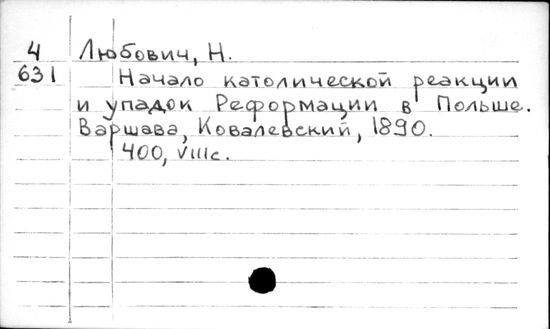 4 Любович, Н.
631 Начало католической реакции
и упадок Реформации в Польше.
Варшава, Ковалевский, 1890.
400, VIIIс.